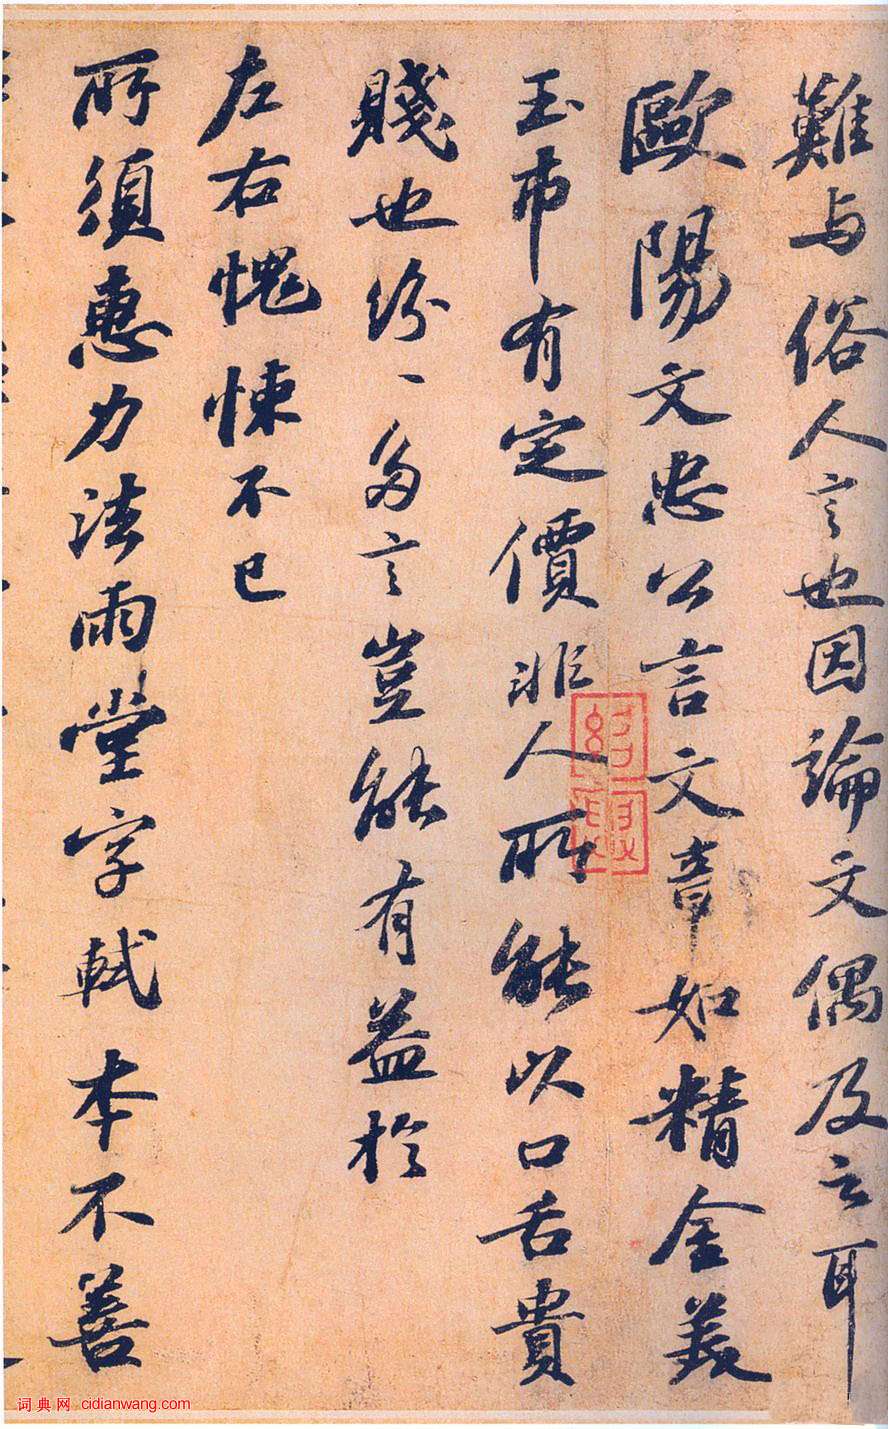 難与俗人言也因論文偶及之耳
歐陽文忠公言文章如精金美
玉市有定價非人所能以口舌貴
賤也紛〻多言豈能有益於
左右愧悚不已
所須惠力法雨堂字軾本不善
词典网 cidianwang.com